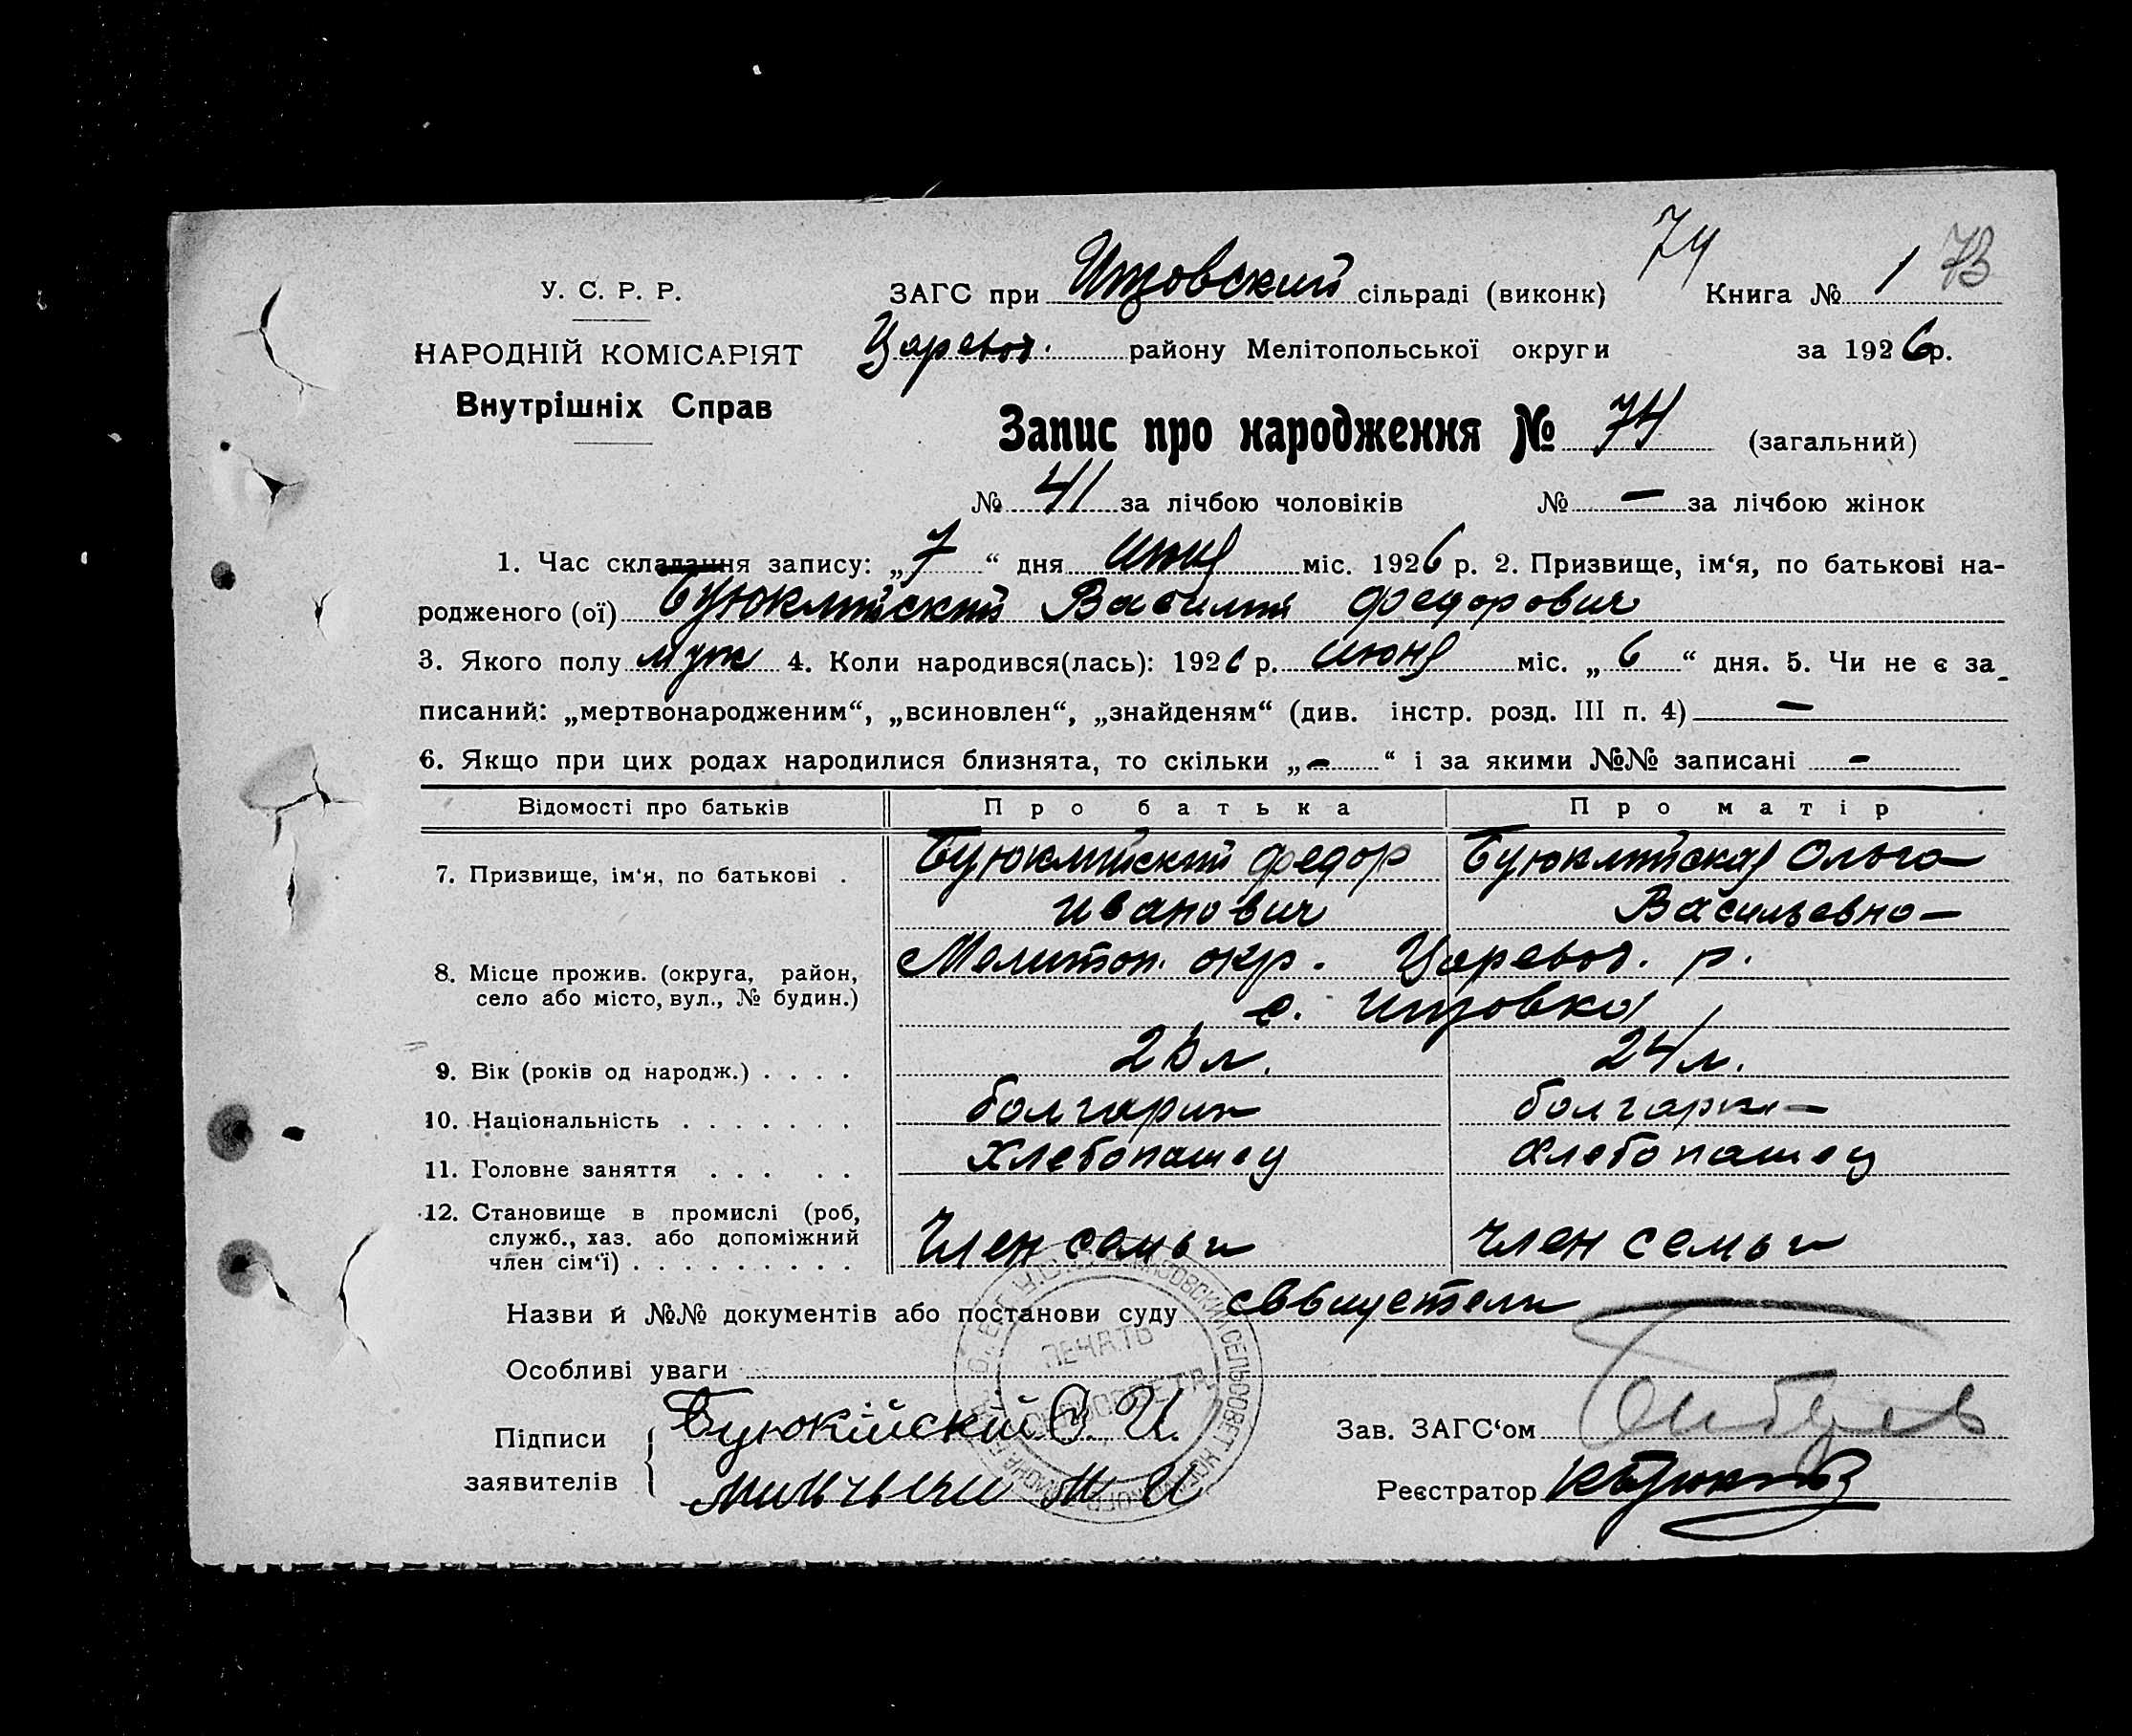 74
У. С. Р. Р. ЗАГС при Инзовский сільраді (виконк) Книга № 1 73
НАРОДНІЙ КОМІСАРІЯТ Царевод. району Мелітопольської округи за 1926 р.
Внутрішніх Справ
Запис про народження № 74 (загальний)
№ 41 за лічбою чоловіків № — за лічбою жінок
1. Час складання запису: „7“ дня июня міс. 1926 р. 2. Призвище, ім‘я, по батькові на-
родженого (ої) Буюклийский Василий Федорович
3. Якого полу муж 4. Коли народився(лась): 1926 р. июня міс. „6“ дня. 5. Чи не є за-
писаний: „мертвонародженим“, „всиновлен“, „знайденям“ (див. інстр. розд. III п. 4) —
6. Якщо при цих родах народилися близнята, то скільки „—“ і за якими №№ записані —
Відомості про батьків Про батька Про матір
7. Призвище, ім‘я, по батькові . Буюклийский Федор Буюклийская Ольга
Иванович Васильевна
8. Місце прожив. (округа, район, Мелитоп. окр. Царевод. р.
село або місто, вул., № будин.) с. Инзовка
9. Вік (років од народж.) . . . . л. 24 л.
10. Національність . . . . . . . болгарин болгарка
11. Головне заняття . . . . . хлебопашец хлебопашец
12. Становище в промислі (роб,
служб., хаз. або допоміжний Член семьи член семьи
член сім‘ї) . . . . . . . . .
Назви й №№ документів або постанови суду свидетели
Особливі уваги
ПЕЧАТЬ
СЕЛЬСОВЕТ
Підписи Буюкійский И. Зав. ЗАГС‘ом
заявителів И Реєстратор